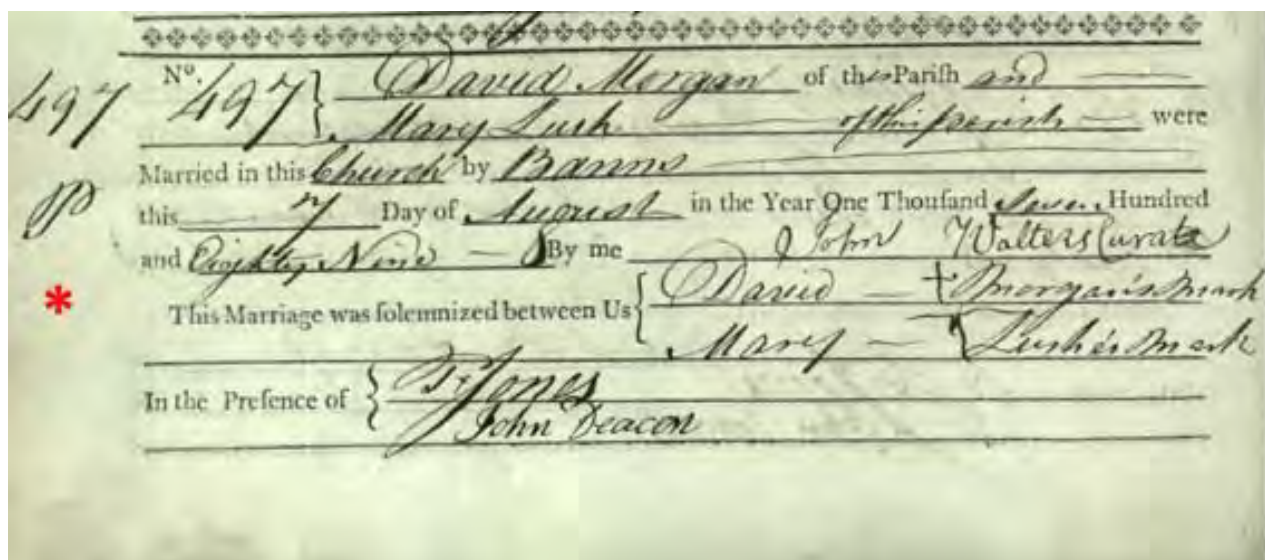 497 No. 497 } David Morgan of this Pariſh and
Mary Lush of this parish were
Married in this Church by Banns
this 7 Day of August in the Year One Thouſand Seven Hundred
and Eighty Nine By me John Walters Curate
* This Marriage was ſolemnized between Us { David + Morgan's Mark
Mary Lush's Mark
In the Preſence of { Jones
John Deacon